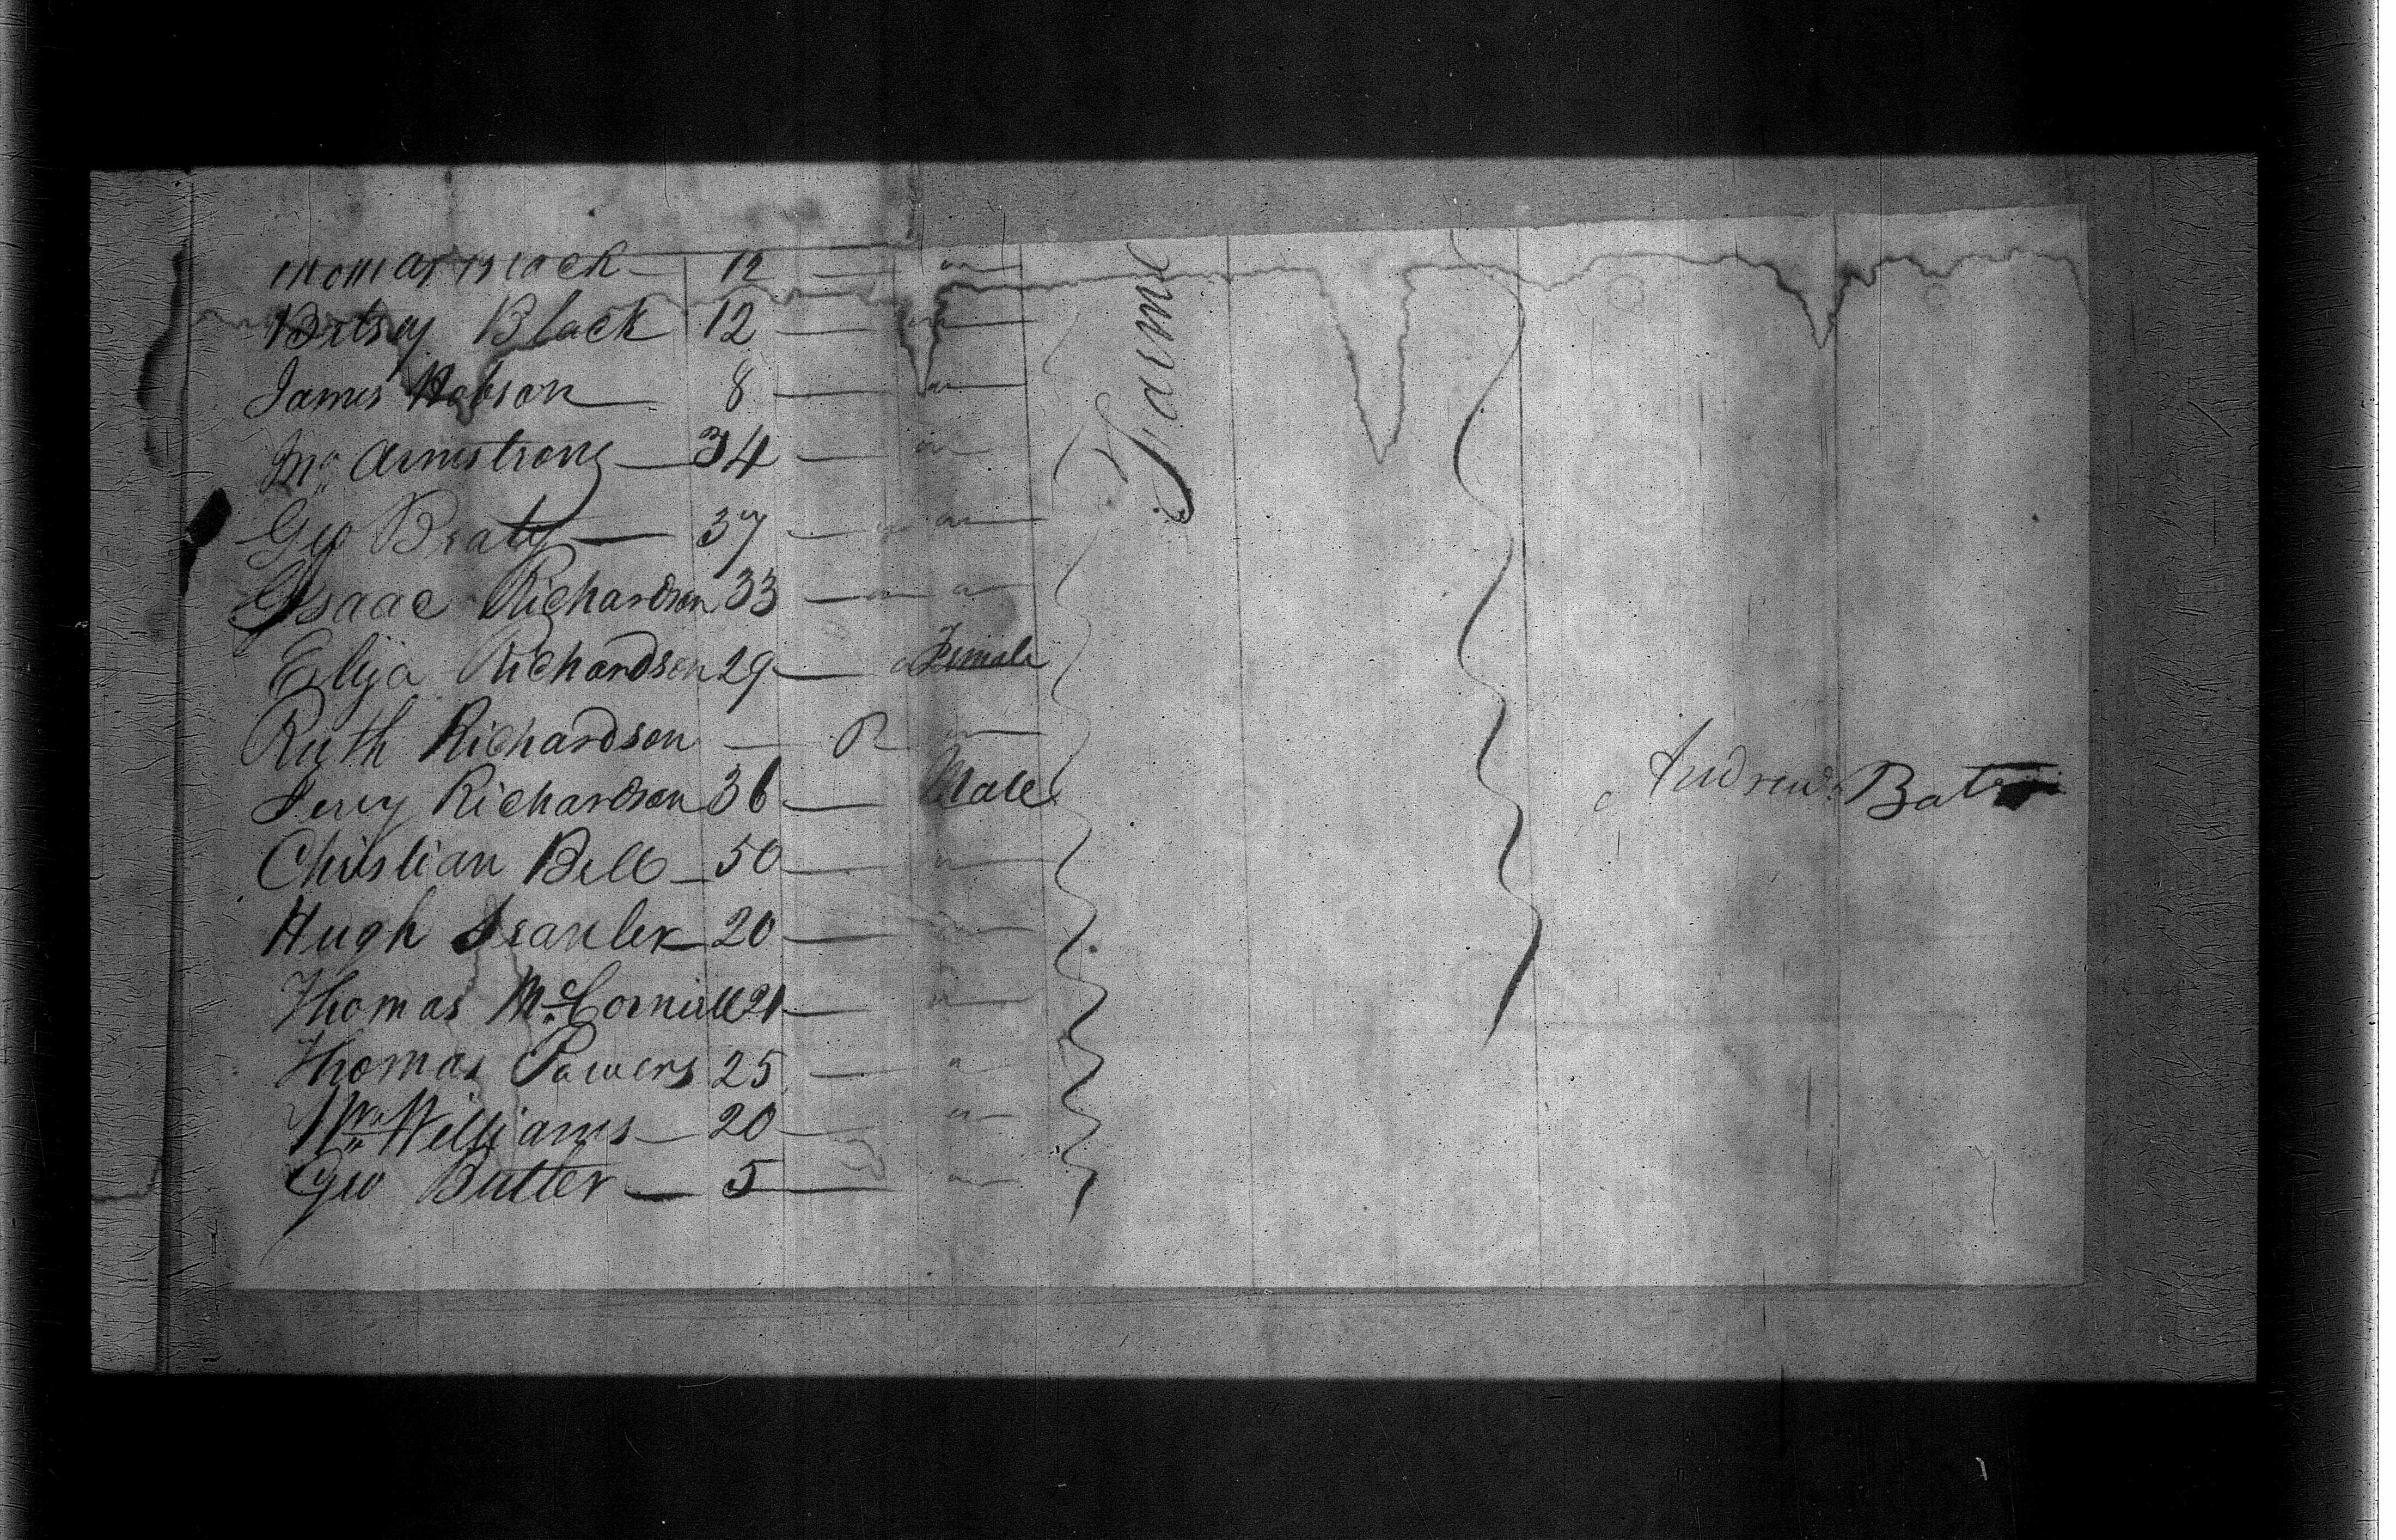 Thomas Black — 12 — " —
Betsey Black 12 — " —
James Hobson — 8 — " —
Jno Armstrong — 34 — " —
Geo Beaty — 37 — " —
Isaac Richardson 33 — " —
Eliza Richardson 29 — Female
Ruth Richardson — " —
Richardson 36 — Male
Christian Bell — 50 — " —
Hugh — 20 — " —
Thomas McCornill 21 — " —
Thomas Powers 25 — " —
Wm Williams — 20 — " —
Geo Butler — 5 — " —
Same
Andrew